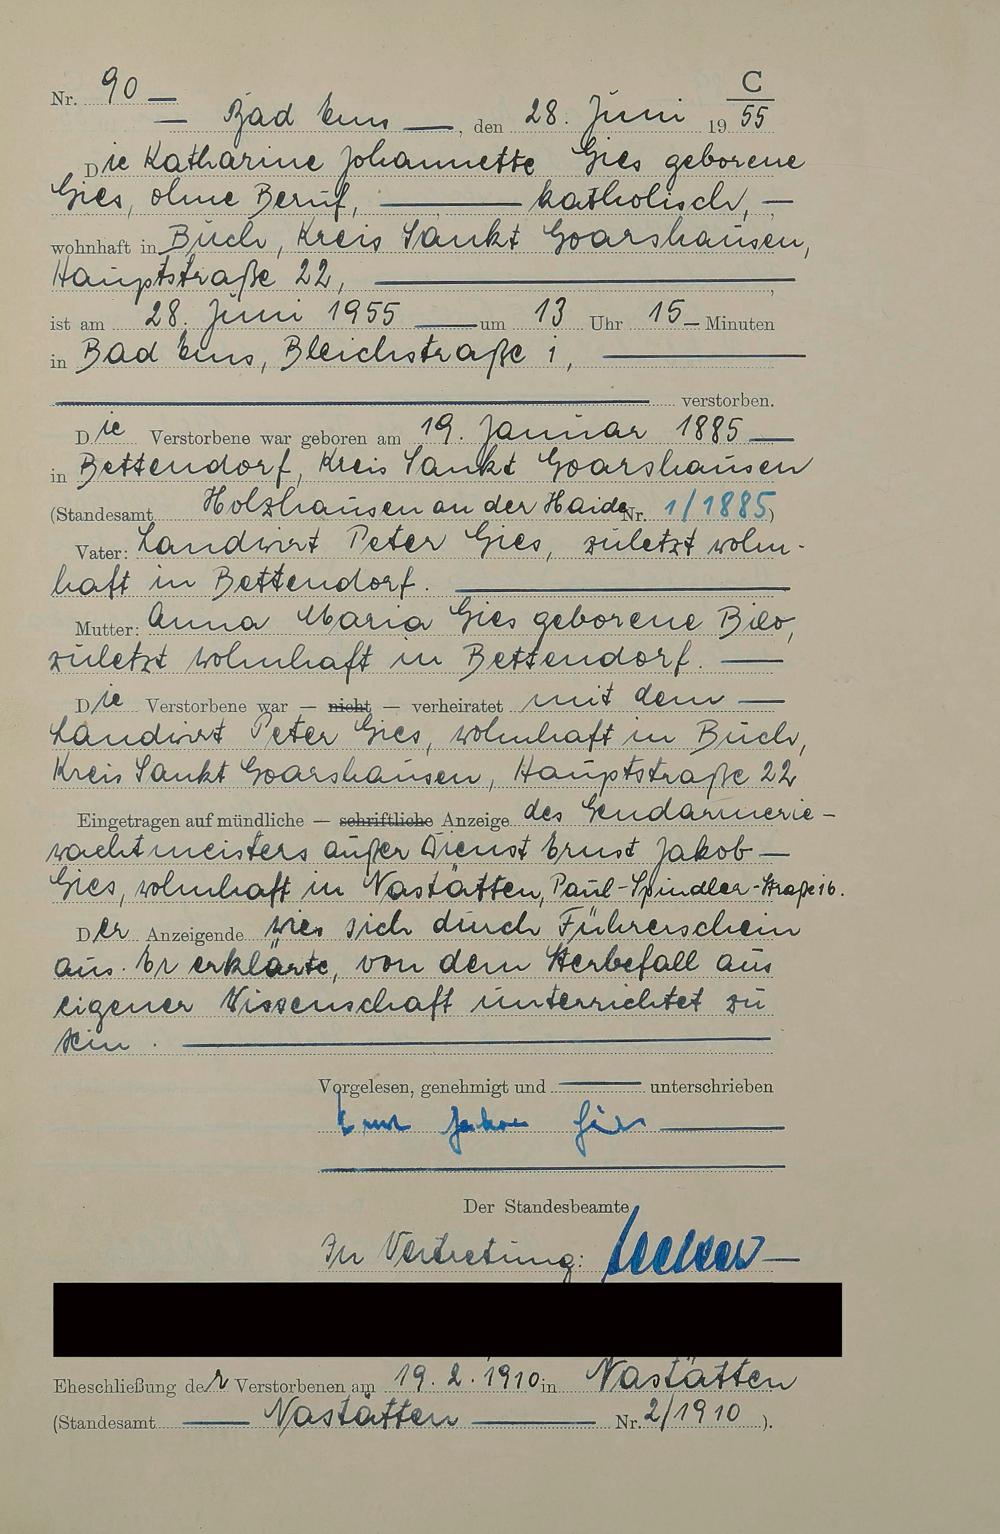 Nr. 90 — C
— Bad Ems —, den 28. Juni 19 55
Die Katharine Johannette Gies geborene
Gies, ohne Beruf, — katholisch, —
wohnhaft in Buch, Kreis Sankt Goarshausen,
Hauptstraße 22, —
ist am 28. Juni 1955 — um 13 Uhr 15 — Minuten
in Bad Ems, Bleichstraße 1, —
— verstorben.
Die Verstorbene war geboren am 19. Januar 1885 —
in Bettendorf, Kreis Sankt Goarshausen
(Standesamt Holzhausen an der Haide Nr. 1/1885)
Vater: Landwirt Peter Gies, zuletzt wohn-
haft in Bettendorf. —
Mutter: Anna Maria Gies geborene
zuletzt wohnhaft in Bettendorf. —
Die Verstorbene war — nicht — verheiratet mit dem —
Landwirt Peter Gies, wohnhaft in Buch,
Kreis Sankt Goarshausen, Hauptstraße 22
Eingetragen auf mündliche — schriftliche Anzeige des Gendarmerie-
wachtmeisters außer Dienst Ernst Jakob —
Gies, wohnhaft in Nastätten, Paul-Spindler-Straße 16.
Der Anzeigende wies sich durch Führerschein
aus. Er erklärte, von dem Sterbefall aus
eigener Wissenschaft unterrichtet zu
sein. —
Vorgelesen, genehmigt und — unterschrieben
Ernst Jakob Gies —
Der Standesbeamte
In Vertretung:
Eheschließung der Verstorbenen am 19.2.1910 in Nastätten
(Standesamt — Nastätten — Nr. 2/1910 ).